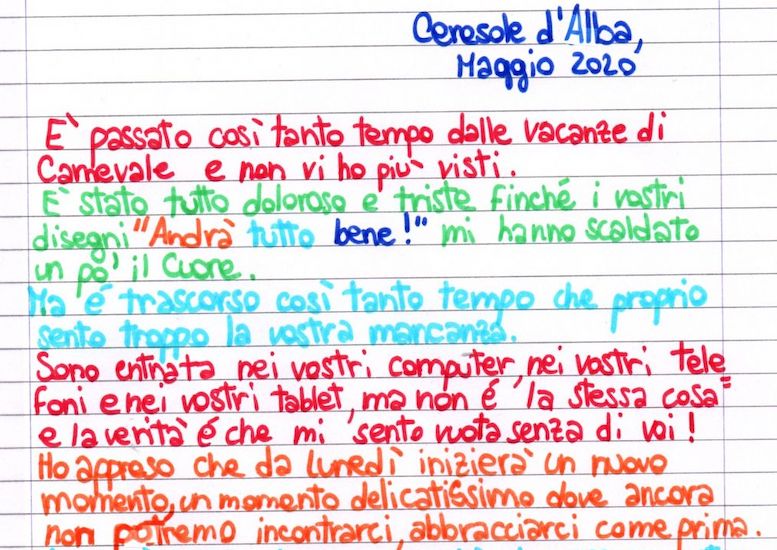 Ceresole d'Alba,
Maggio 2020
E' passato così tanto tempo dalle vacanze di
Carnevale e non vi ho più visti.
E' stato tutto doloroso e triste finché i vostri
disegni "Andrà tutto bene!" mi hanno scaldato
un pò' il cuore.
Ma é trascorso così tanto tempo che proprio
sento troppo la vostra mancanza.
Sono entrata nei vostri computer, nei vostri tele
foni e nei vostri tablet, ma non é la stessa cosa=
e la verità é che mi sento vuota senza di voi!
Ho appreso che da lunedì inizierà un nuovo
momento, un momento delicatissimo dove ancora
non potremo incontrarci, abbracciarci come prima.